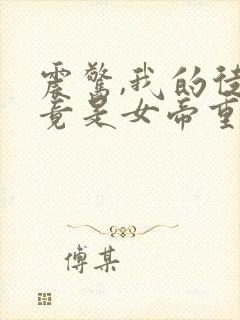 震惊,我的徒
竟是女帝重
傅某